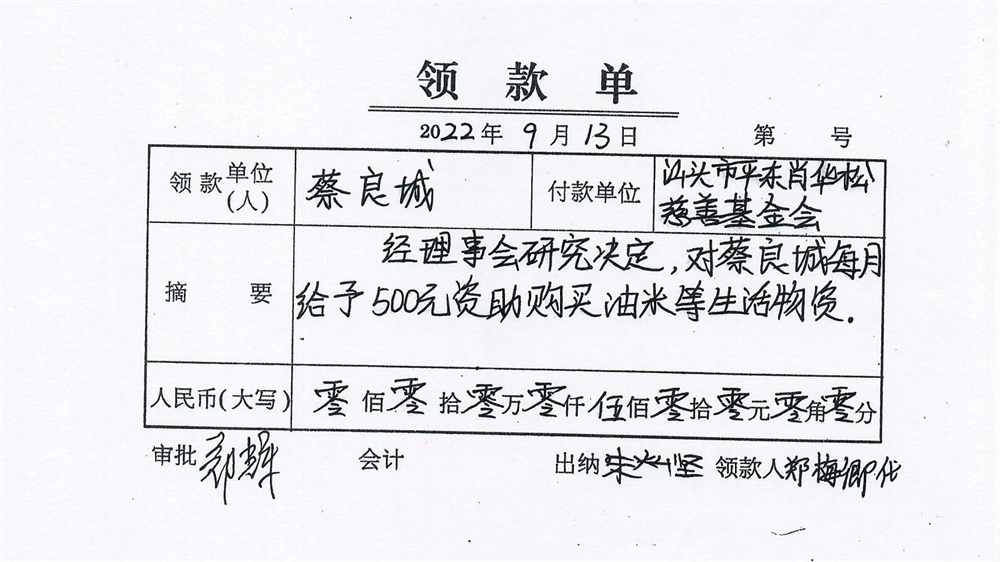 领款单
2022年9月13日 第 号
领款单位(人) 蔡良城 付款单位 汕头市平东肖华松慈善基金会
摘要 经理事会研究决定，对蔡良城每月
给予500元资助购买油米等生活物资.
人民币(大写) 零佰零拾零万零仟伍佰零拾零元零角零分
审批 会计 出纳 领款人郑梅卿代